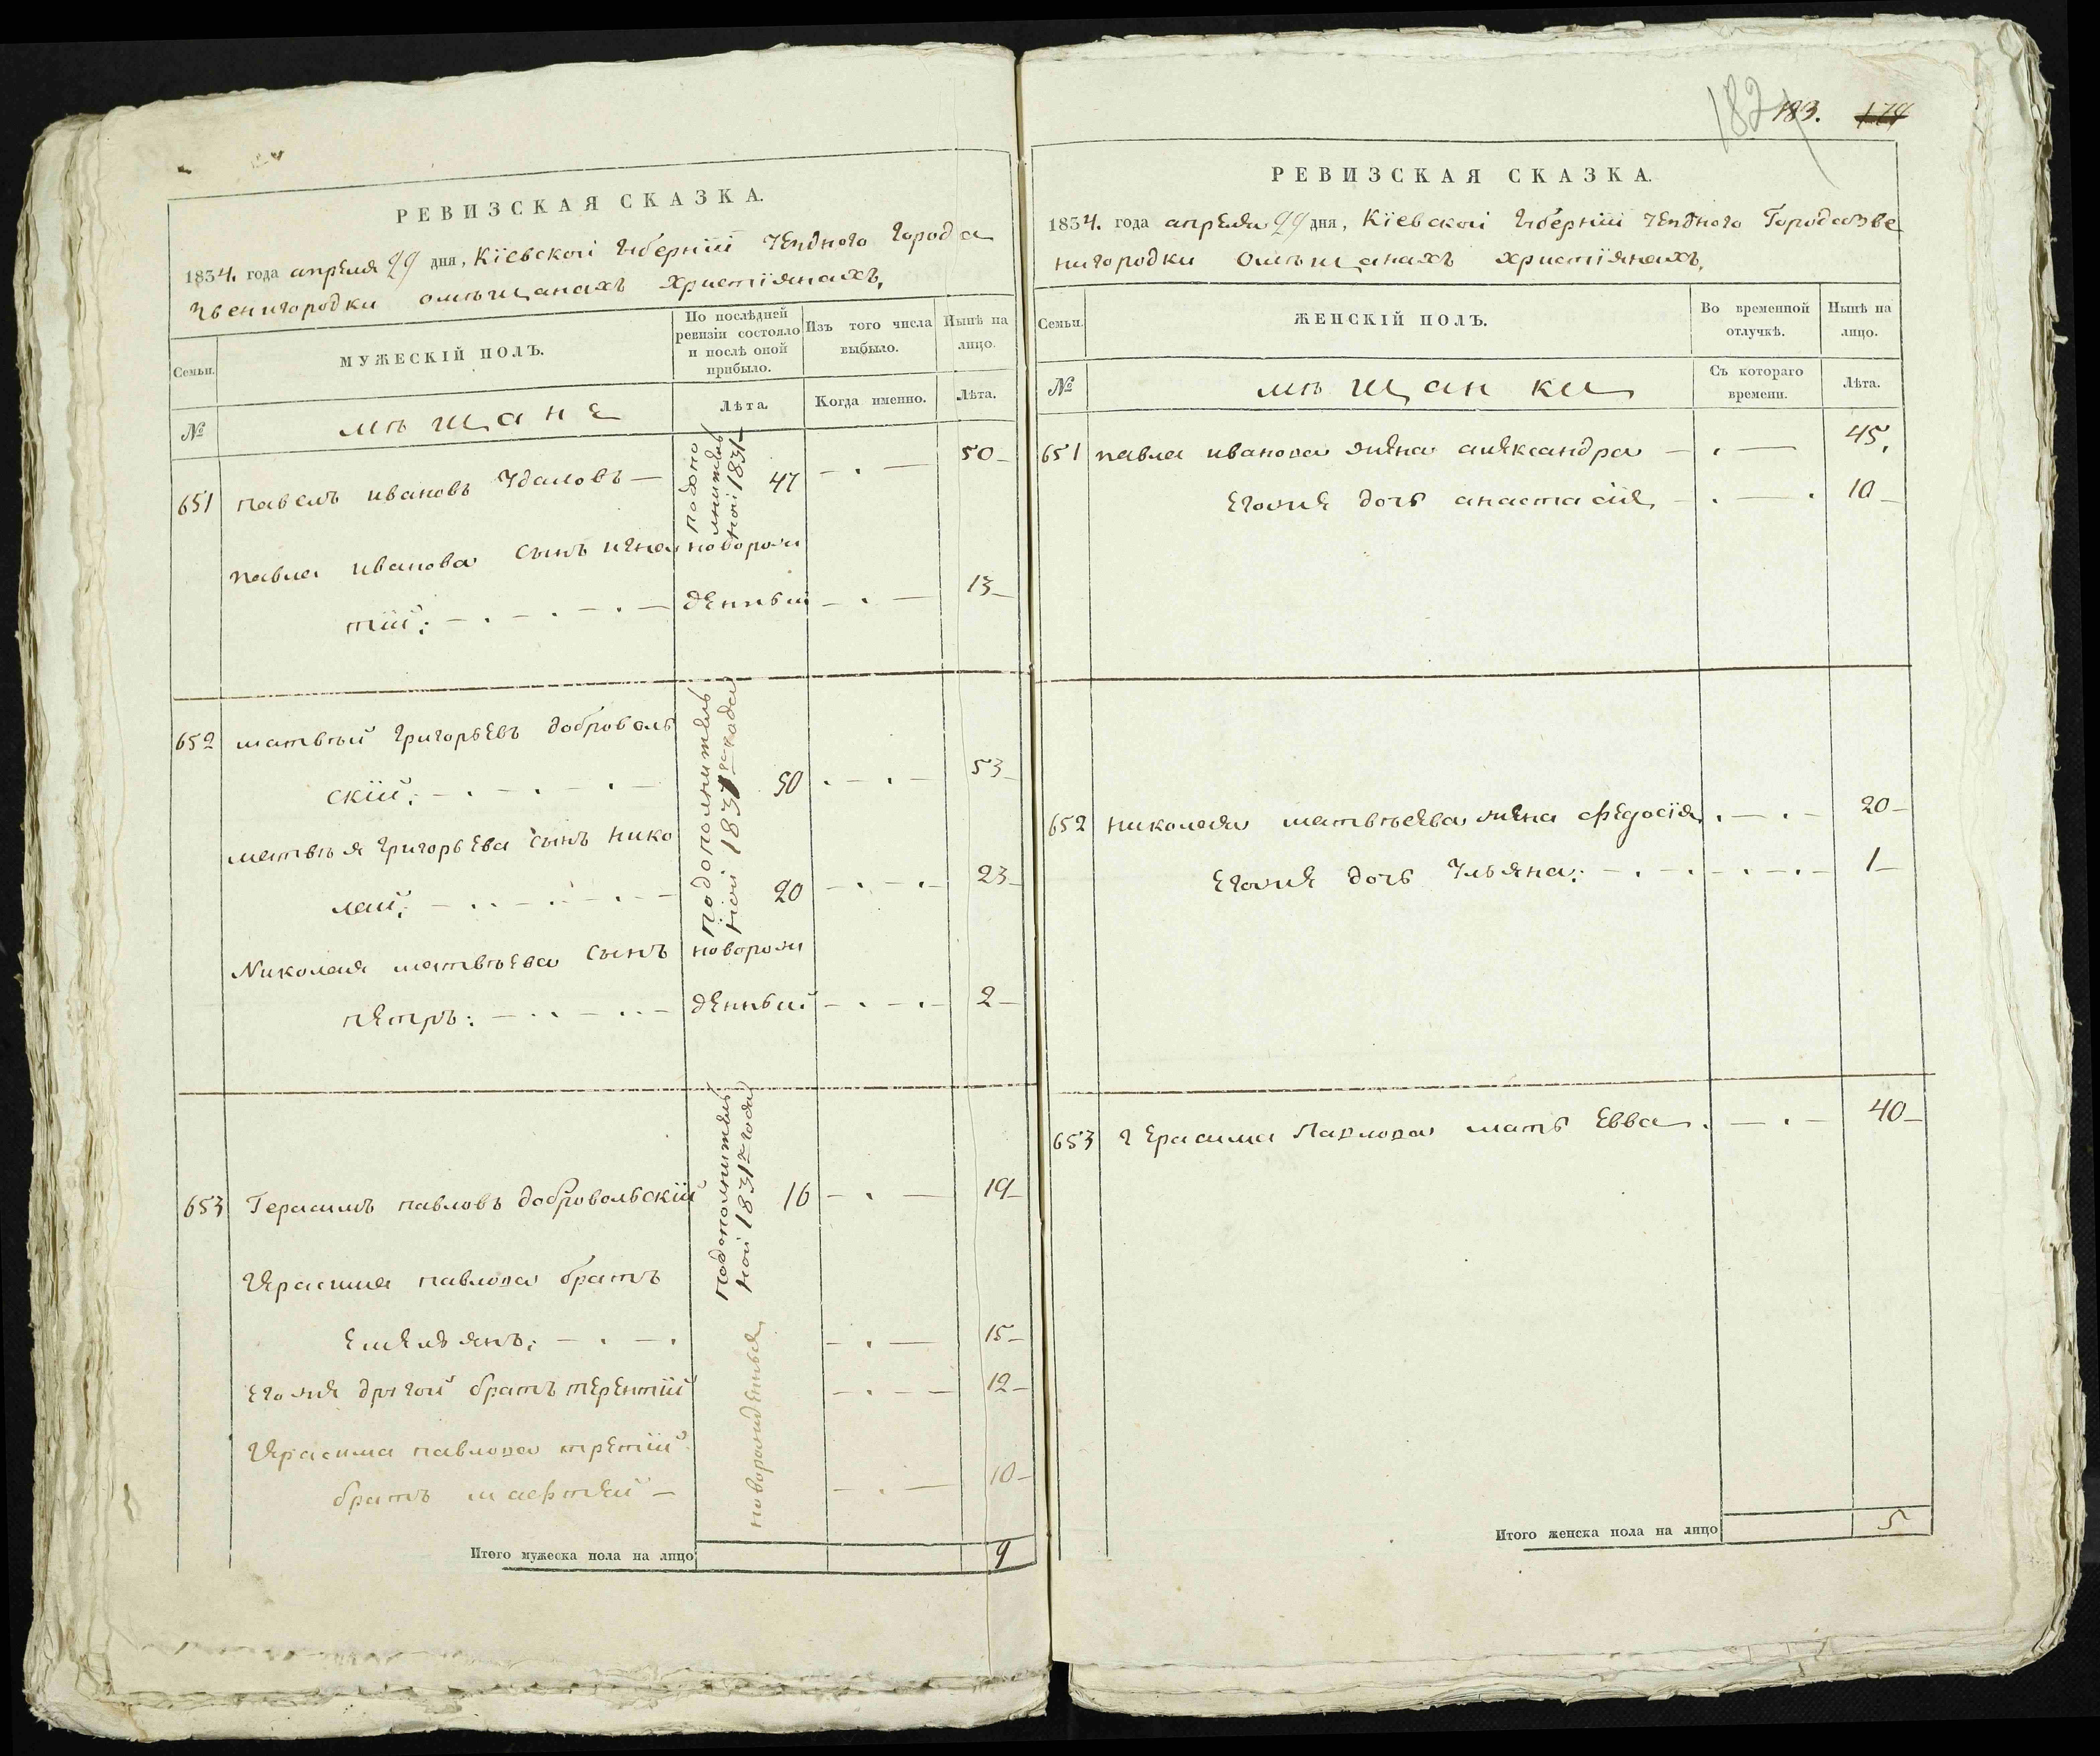 РЕВИЗСКАЯ СКАЗКА.
1834. года апреля 29 дня, Кіевской губерніи уездного города
звенигородки омѣщанахъ христіянахъ,
Семьи.
МУЖЕСКІЙ ПОЛЪ.
По послѣдней ревизіи состояло и послѣ оной прибыло.
Изъ того числа выбыло.
Нынѣ на лицо.
№
мѣщане
Лѣта.
Когда именно.
Лѣта.
651 павелъ ивановъ Удаловъ — подополнительной 1831 47 — . — 50
павла иванова сынъ игна новорож
тій: — . — . — . — денный — . — 13
652 матвѣй григорьевъ доброволь
скій: — . — . — . — подополнительной 1831го года 50 . — . — 53
матвѣя григорьева сынъ нико
лай: — . . — . — . — 20 — . — . — 23
Николая матвѣева сынъ новорож
петръ: — . . — . . — денный — . — . — 2
653 Герасимъ павловъ добровольскій подополнительной 1831го года 16 — . — 19
герасима павлова братъ
емельянъ: — . — . новорожденные — . — 15
егоже другой братъ терентій — . — 12
герасима павлова третій
братъ мафтей — — . — 10
Итого мужеска пола на лицо 9
182 183. 174
РЕВИЗСКАЯ СКАЗКА.
1834. года апреля 29 дня, Кіевской губерніи уездного Города зве
нигородки омѣщанахъ христіянахъ,
Семьи.
ЖЕНСКІЙ ПОЛЪ.
Во временной отлучкѣ.
Нынѣ на лицо.
№
мѣщанки
Съ котораго времени.
Лѣта.
651 павла иванова жена александра — . — 45,
егоже дочь анастасія — . — . 10
652 николая матвѣева жена федосія . — . — 20
егоже дочь Ульяна: — . — . — . — . — 1
653 герасима Павлова мать Евва . — . — 40
Итого женска пола на лицо 5